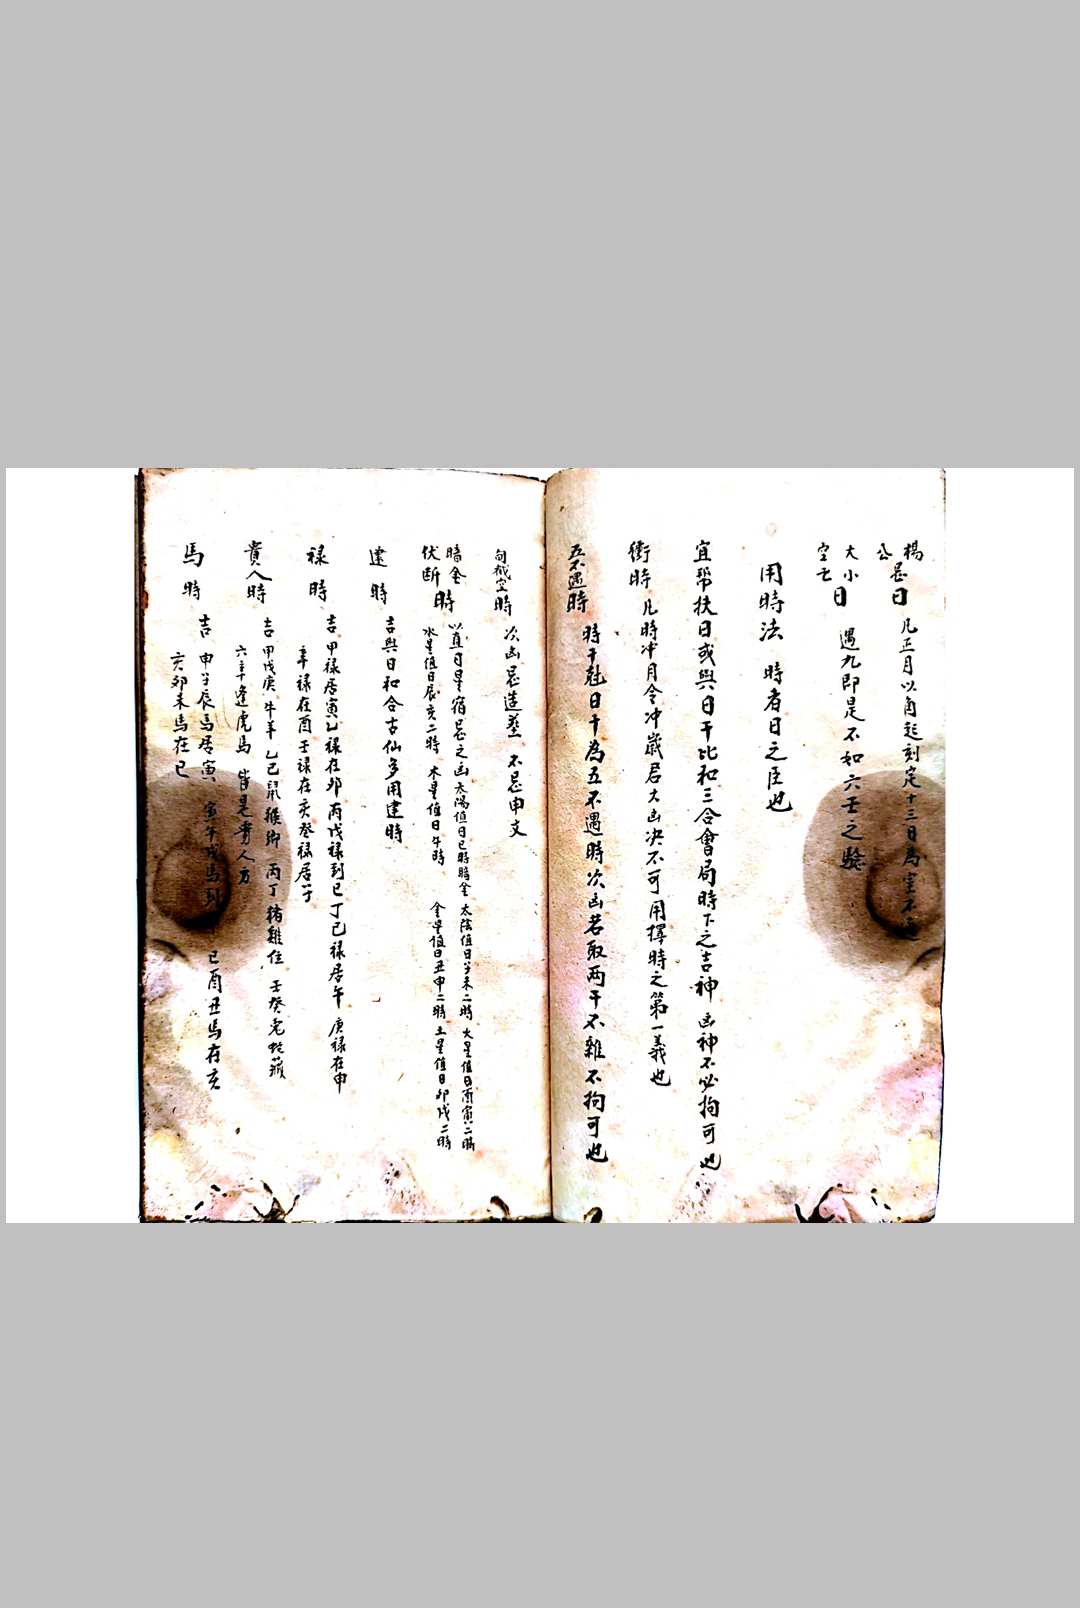 楊公忌日 凡正月以角起刻定十三日為室不
大小空亡日 遇九即是不如六壬之驗
用時法 時者日之臣也
宜帮扶日或與日干比和三合會局時下之吉神 凶神不必拘可也
衝時 凡時冲月令冲歲君大凶决不可用擇時之第一義也
五不遇時 時干尅日干為五不遇時次凶若取兩干不雜不拘可也
旬截空時 次凶忌造葬 不忌申文
暗金伏断時 以直日星宿忌之凶太陽值日巳時暗金 太陰值日子未二時 火星值日酉寅二時
水星值日辰亥二時 木星值日午時 金星值日丑申二時 土星值日卯戌二時
建時 吉與日和合古仙多用建時
禄時 吉甲禄居寅乙禄在卯丙戊禄到巳丁己禄居午 庚禄在申
辛禄在酉壬禄在亥癸禄居子
貴人時 吉甲戊庚牛羊乙己鼠猴鄉 丙丁猪雞位 壬癸兎蛇藏
六辛逢虎馬 皆是貴人方
馬時 吉 申子辰馬居寅 寅午戌馬到 巳酉丑馬在亥
亥卯未馬在巳